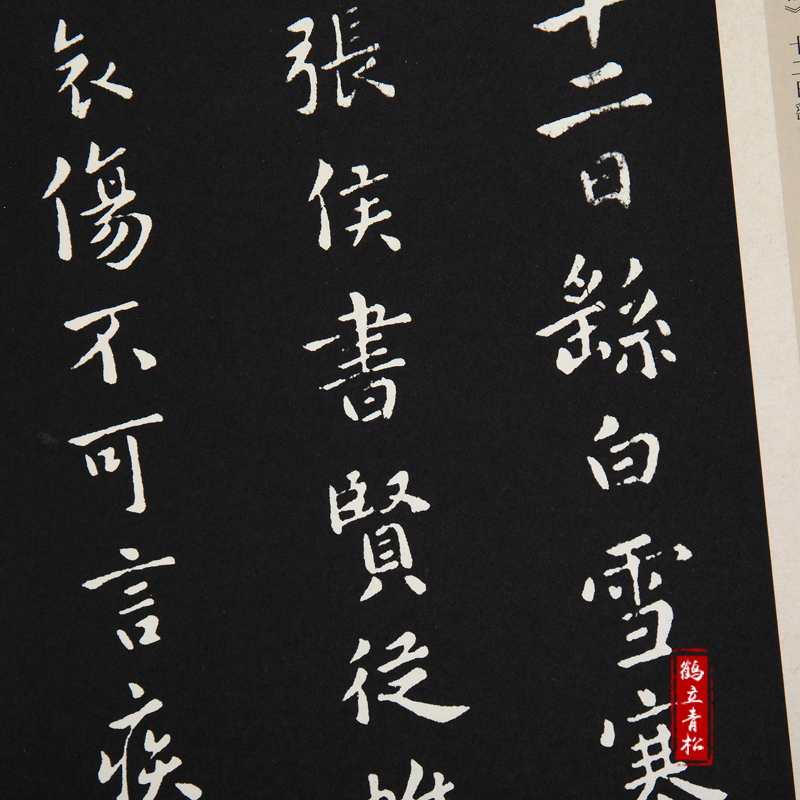 十二日繇白雪寒
張侯書賢從
哀傷不可言疾
鹤立青松